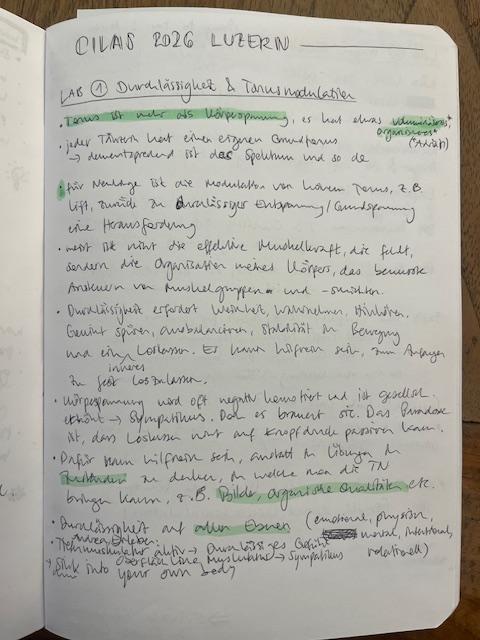 CILAS 2026 LUZERN
LAB ① Durchlässigkeit & Tonusmodulation
• Tonus ist mehr als Körperspannung, es hat etwas
organischeres*
• jede*r Tänzer*in hat einen eigenen Grundtonus
→ dementsprechend ist das Spektrum und so
• für Neulinge ist die Modulation von hohem Tonus, z.B.
Lift, zurück zu durchlässiger Entspannung/Grundspannung
eine Herausforderung
• meist ist nicht die effektive Muskelkraft, die fehlt,
sondern die Organisation meines Körpers, das bewusste
Ansteuern von Muskelgruppen und -schichten.
• Durchlässigkeit erfordert Weichheit, Wahrnehmen, Hinhören,
Gewicht spüren, ausbalancieren, Stabilität in Bewegung
und ein inneres Loslassen. Es kann hilfreich sein, zum Anfangen
zu fest loszulassen.
• Körperspannung wird oft negativ konnotiert und ist gesellsch.
erhöht → Sympathikus. Doch es braucht sie. Das Paradoxe
ist, dass Loslassen nicht auf Knopfdruck passieren kann.
• Dafür kann hilfreich sein, anstatt in Übungen in
Zuständen zu denken, in welche man die TN
bringen kann, z.B. Bilder, organische Qualitäten etc.
• Durchlässigkeit auf allen Ebenen (emotional, physisch,
mental, intentional,
relationell)
anderes Erleben:
• Tiefenmuskulatur aktiv → Durchlässiges Gefühl
oberflächliche Muskulatur → Sympathikus
• sink into your own body